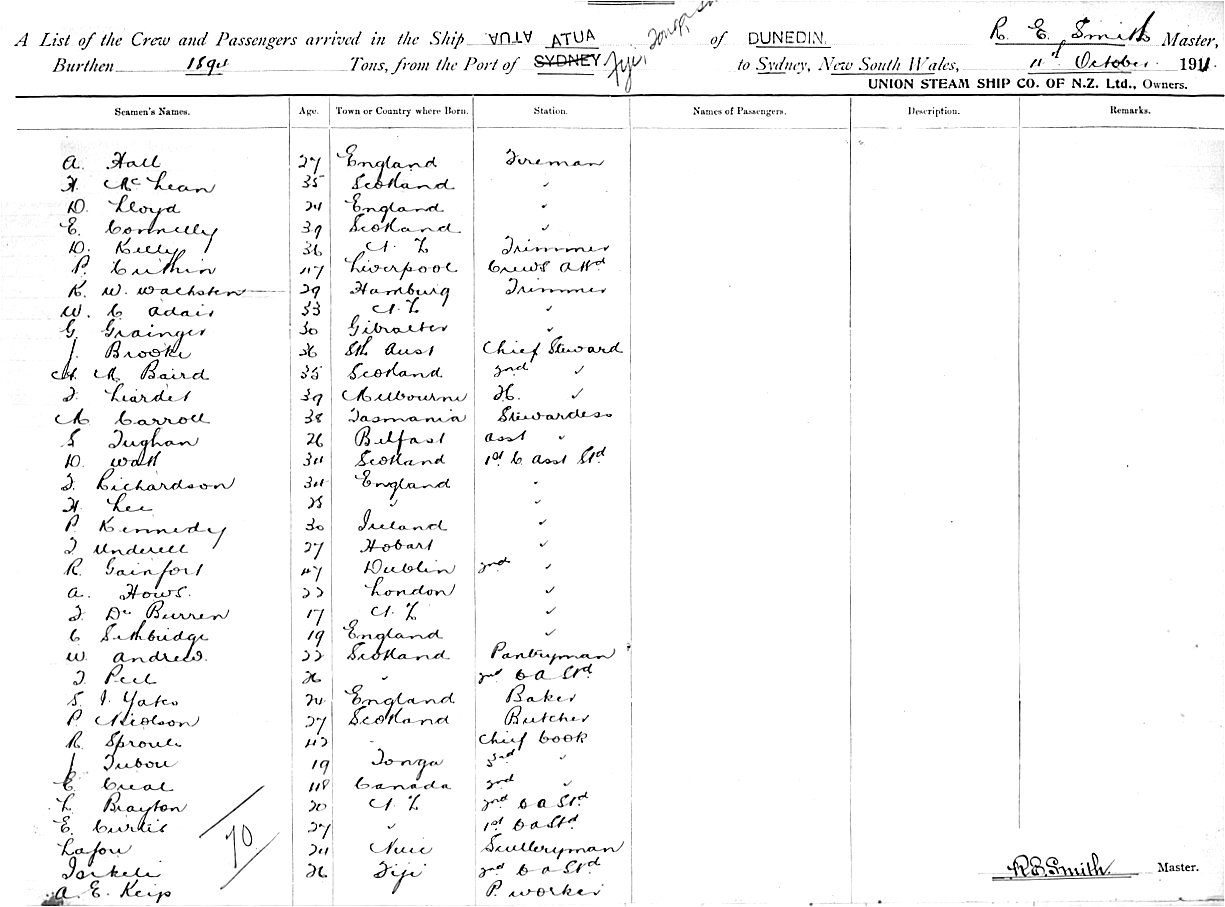 A List of the Crew and Passengers arrived in the Ship ATUA ATUA of DUNEDIN. R. E. Smith Master,
Burthen Tons, from the Port of SYDNEY Fiji to Sydney, New South Wales, 11th of October 1911.
UNION STEAM SHIP CO. OF N.Z. Ltd., Owners.
Seamen's Names. Age. Town or Country where Born. Station. Names of Passengers. Description. Remarks.
A. Hall 27 England Fireman
H. McLean 35 Scotland "
D. Lloyd 24 England "
E. Connelly 39 Scotland "
D. Kelly 36 N. Z. Trimmer
P. 47 Liverpool Crews Attd
K. W. Wachsten 29 Hamburg Trimmer
W. C Adair 33 N. Z. "
G. Grainger 30 Gibralter "
J. Brooke 36 Sth Aust Chief Steward
M. Baird 35 Scotland 2nd "
F. Liardet 39 Melbourne "
M Carroll 38 Tasmania Stewardess
S Tughan 26 Belfast asst "
D. Watt 34 Scotland 1st C asst Std
F. Richardson 34 England "
H. Lee 28 " "
P. Kennedy 30 Ireland "
F Underell 27 Hobart "
R. Gainfort 47 Dublin 2nd "
A. Hows. 22 London "
F. Burren 17 N. Z "
C 19 England "
W. Andrew. 22 Scotland Pantryman
F Peel 26 " 2nd C A Std
S. J. Yates 24 England Baker
P. Nicolson 27 Scotland Butcher
R. Sproule 42 Chief Cook
J Tubou 19 Tonga 3rd "
E. 48 Canada 2nd "
L. Brayton 20 N. Z 2nd C A Std
E. Curtis 27 " 1st C A Std
70.
Lafou 24 Niue Sculleryman
26 Fiji 2nd C A Std
R. E. Smith. Master.
A. E. Keip P. worker